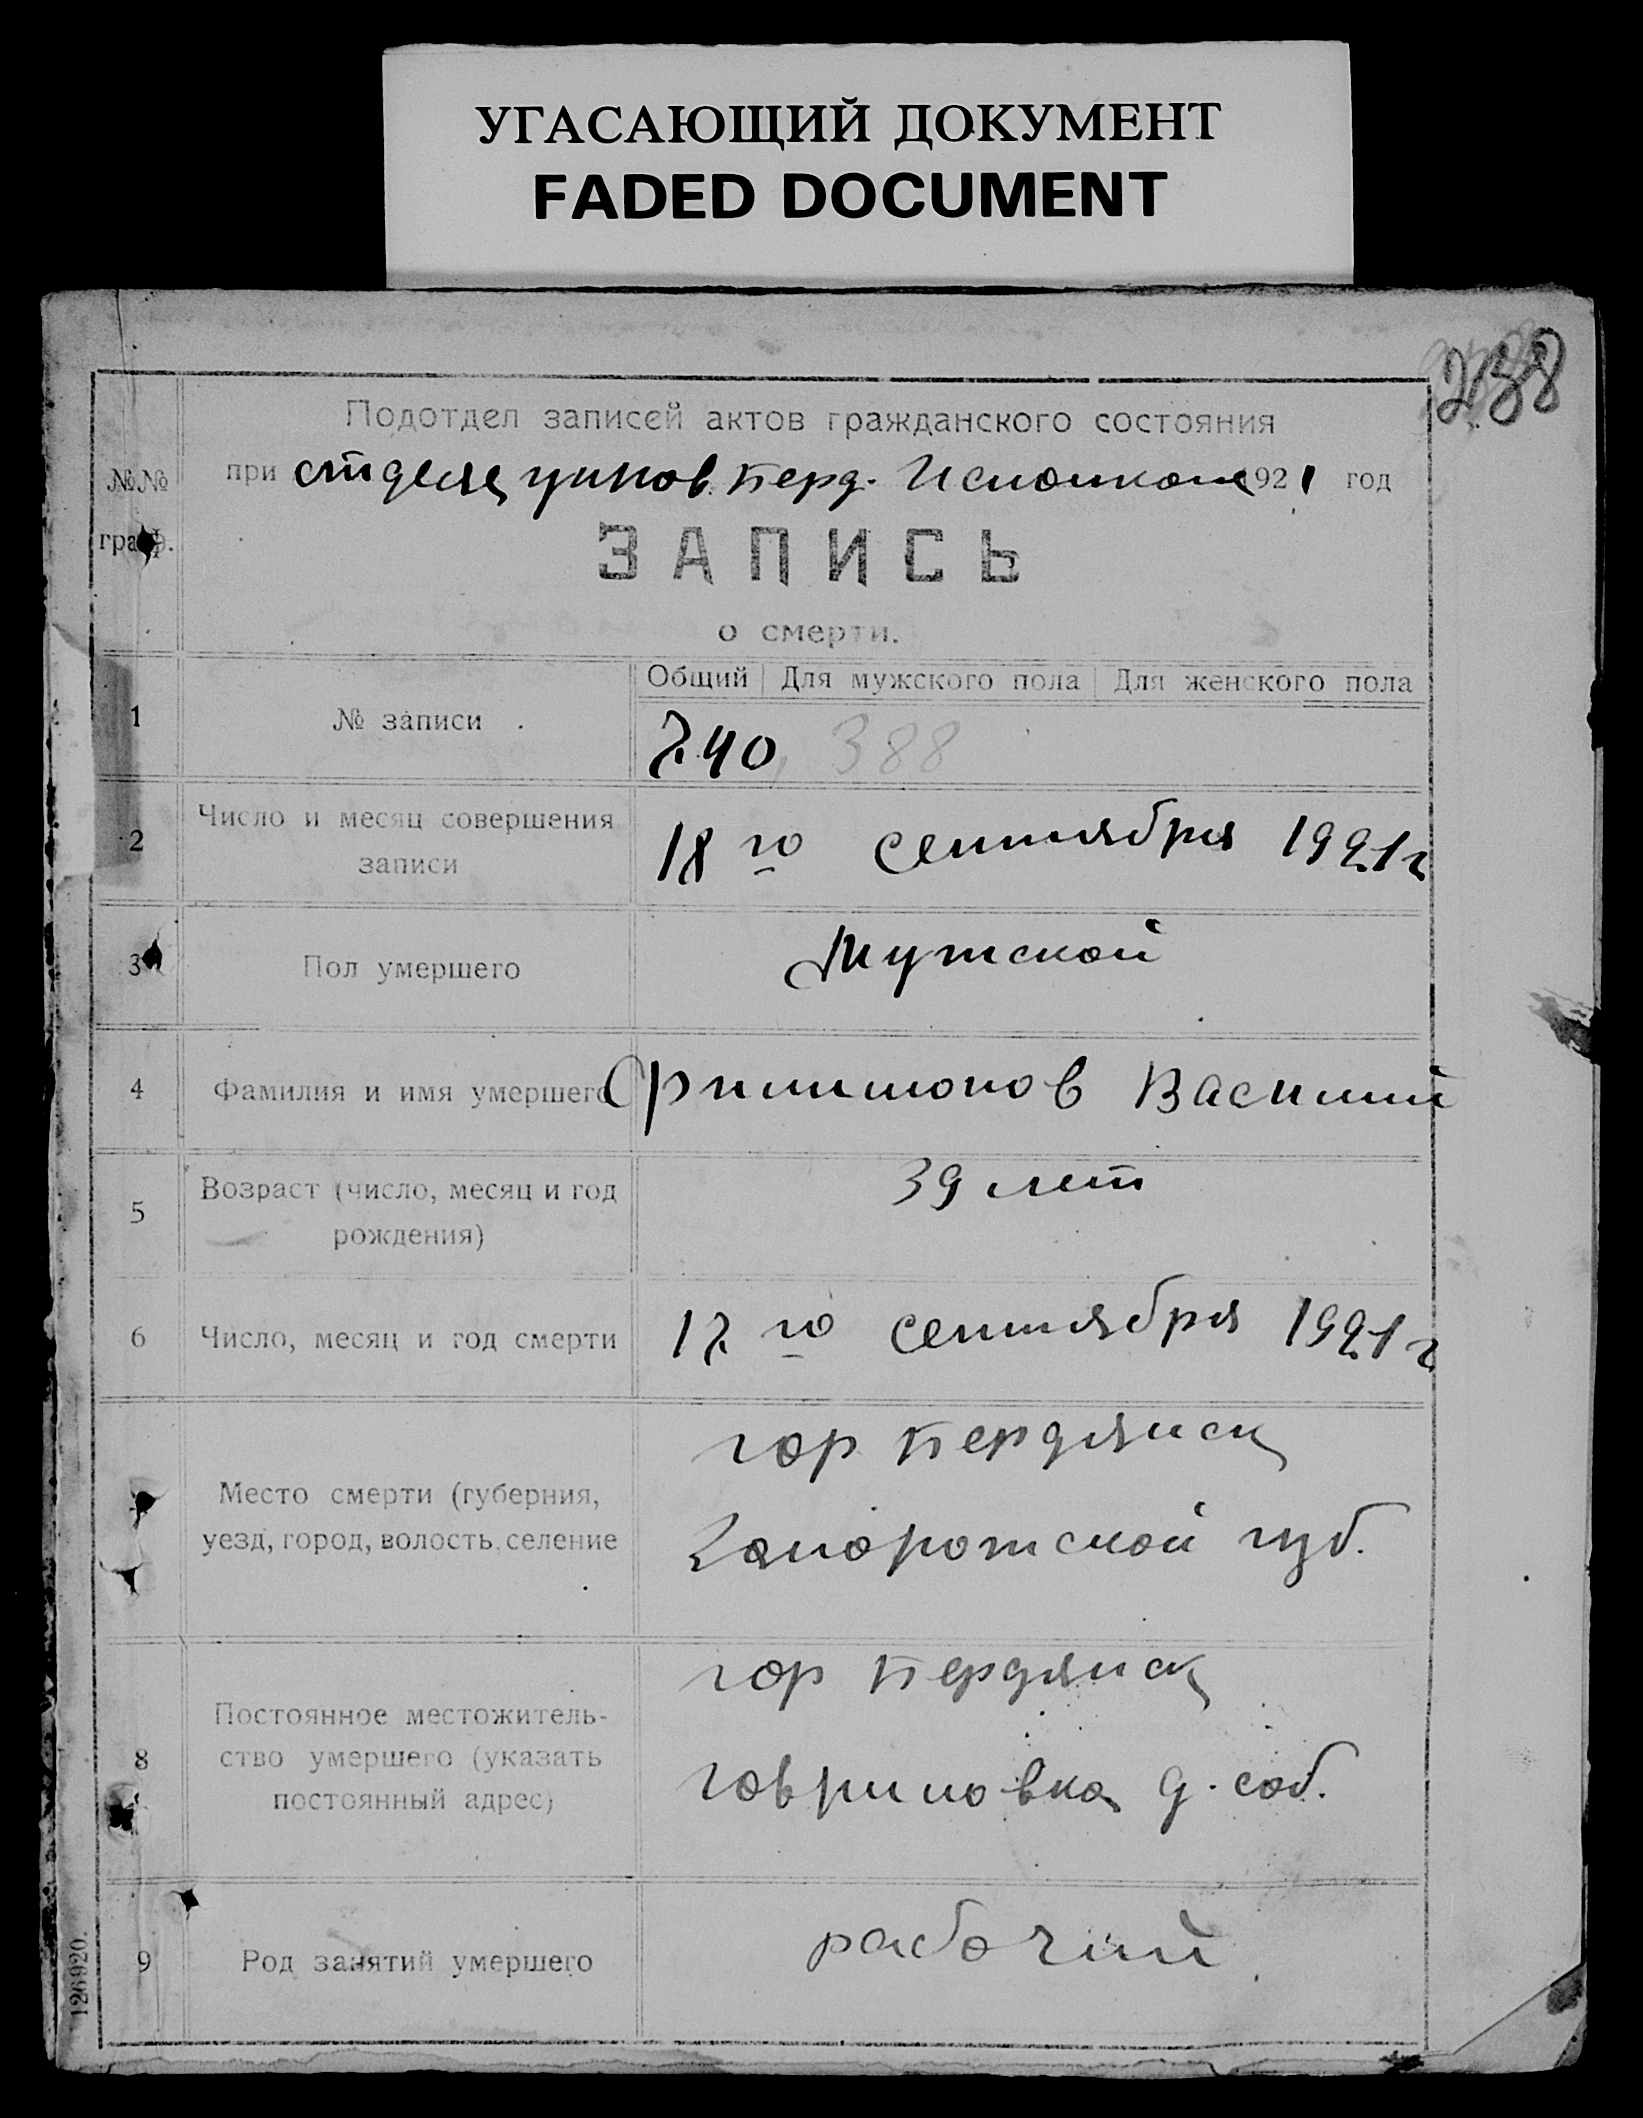 УГАСАЮЩИЙ ДОКУМЕНТ
FADED DOCUMENT
238
Подотдел записей актов гражданского состояния
№№ граф.
при отделе управ. Берд. Исполкома 1921 год
ЗАПИСЬ
о смерти.
Общий Для мужского пола Для женского пола
1 № записи 740 388
2 Число и месяц совершения
записи
18го сентября 1921г
3 Пол умершего Мужской
4 Фамилия и имя умершего Филимонов Василий
5 Возраст (число, месяц и год
рождения)
39 лет
6 Число, месяц и год смерти 17го сентября 1921г
Место смерти (губерния,
уезд, город, волость, селение
гор Бердянск
Запорожской губ.
8 Постоянное местожитель-
ство умершего (указать
постоянный адрес)
гор Бердянск
Гавриловка д. соб.
9 Род занятий умершего рабочий
126920.